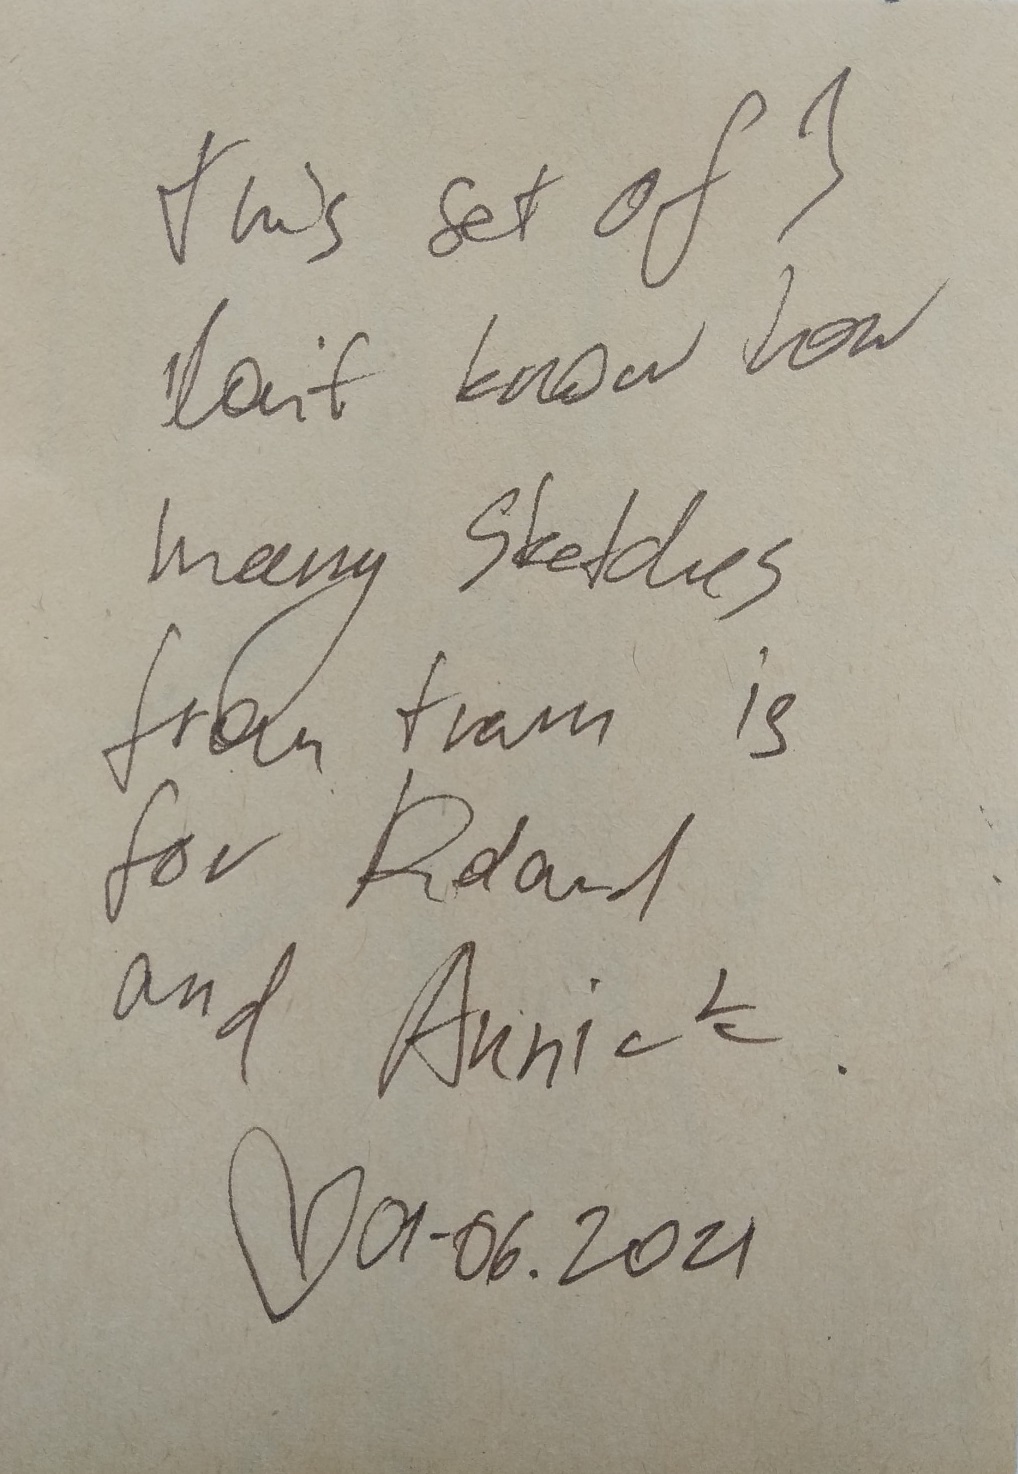 this set of I
don't know how
many sketches
from tram is
for Roland
and Annick.
♡ 01-06.2021